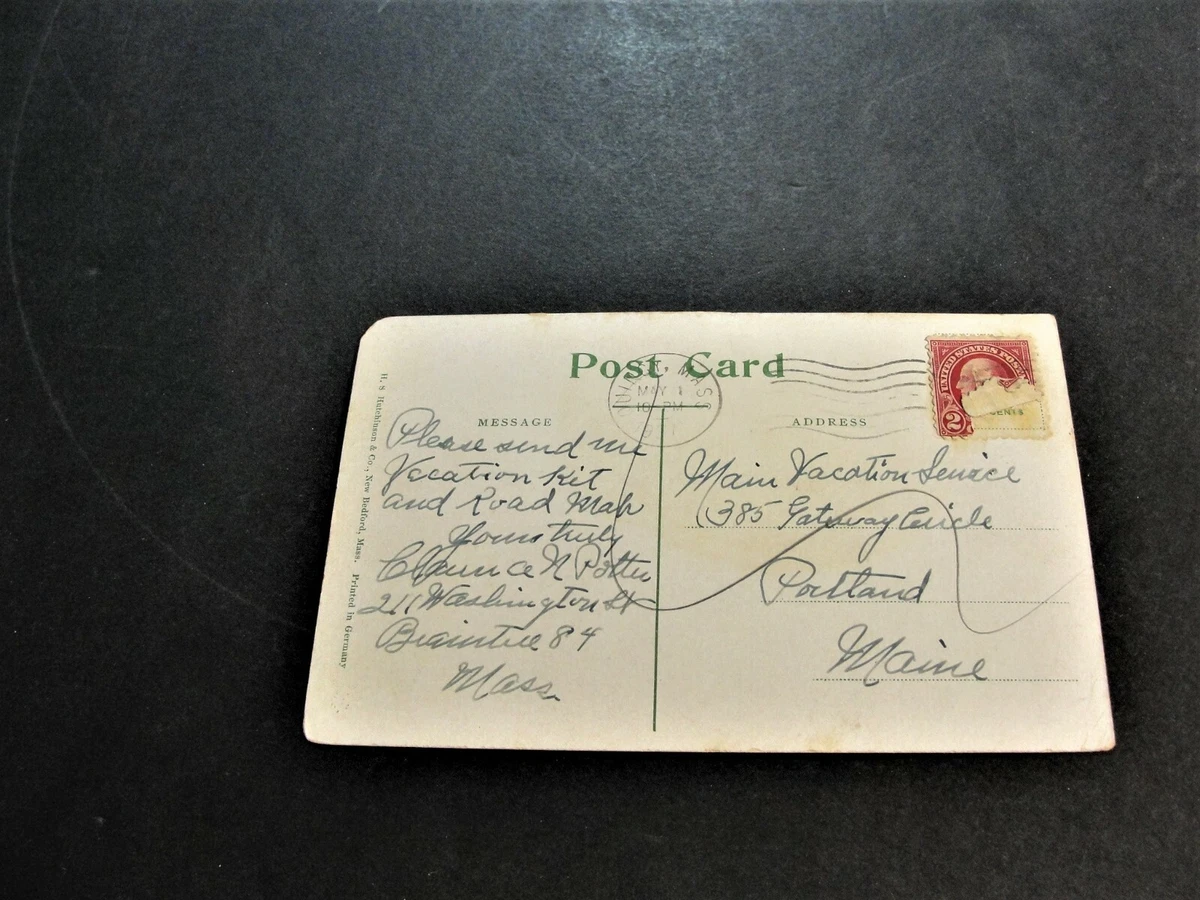 Post Card
MAY 1
10 PM
MASS
UNITED STATES POST
2
CENTS
MESSAGE
Please send me
Vacation Kit
and Road Map
Yours truly
Clarence N Potter
211 Washington St
Braintree 84
Mass.
ADDRESS
Main Vacation Service
1385 Gateway Circle
Portland
Maine
H. S. Hutchinson & Co., New Bedford, Mass. Printed in Germany